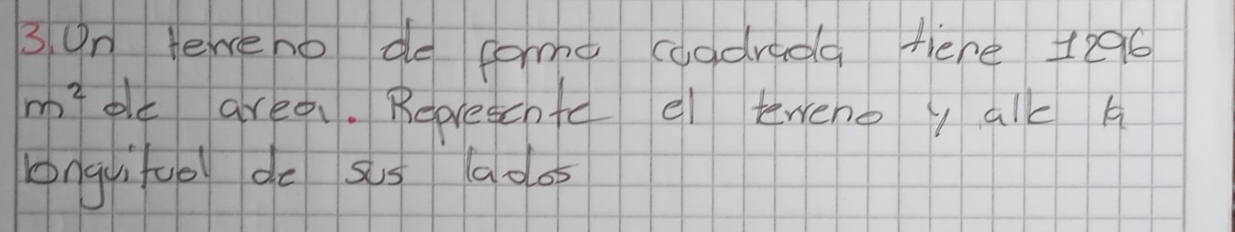 3. Un terreno de forma cuadrada tiene 1296
m² de area. Represente el terreno y alle la
longuitud de sus lados